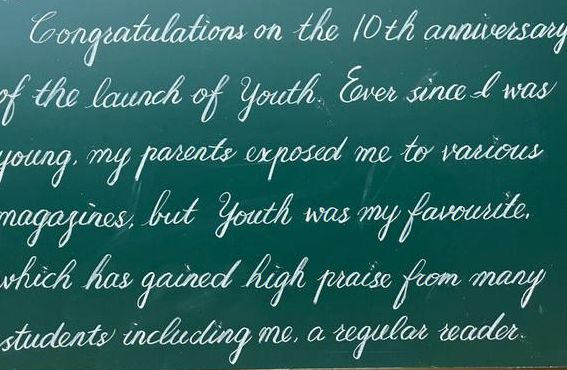 Congratulations on the 10th anniversary
of the launch of Youth. Ever since I was
young, my parents exposed me to various
magazines, but Youth was my favourite,
which has gained high praise from many
students including me, a regular reader.